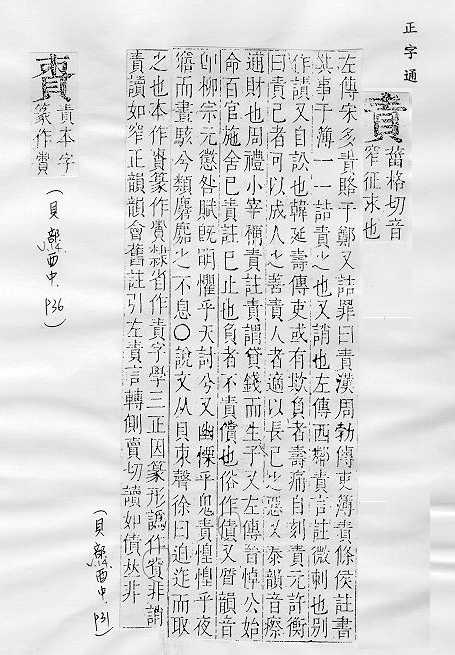 正字通
責
菑格切音
窄征求也
左傳宋多責賂于鄭又詰罪曰責漢周勃傳吏簿責條侯註書
其事于簿一一詰責之也又誚也左傳西鄰責言註微刺也別
作謮又自訟也韓延壽傳吏或有欺負者壽痛自刻責元許衡
曰責己者可以成人之善責人者適以長己之惡又泰韻音瘵
逋財也周禮小宰稱責註責謂貸錢而生子又左傳晉悼公始
命百官施舍已責註已止也負者不責償也俗作債又質韻音
卽柳宗元懲咎賦旣明懼乎天討兮又幽慄乎鬼責惶惶乎夜
寤而晝駭兮類麏麚之不息〇說文从貝朿聲徐曰迫迮而取
之也本作責篆作賚隸省作責字學三正因篆形譌作賚非謂
責讀如窄正韻韻會舊註引左責言轉側賣切讀如債𠀤非
責本字
篆作賚
(貝部酉中, P36)
(貝部酉中, P31)